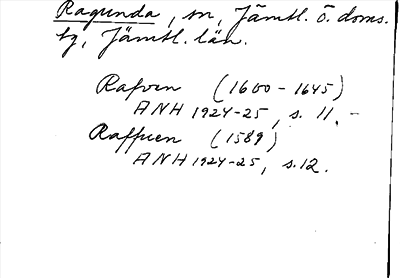 Ragunda, sn, Jämtl. ö. doms.
bg, Jämtl. län.
Rafven (1600-1645)
ANH 1924-25, s. 11. -
Raffuen (1589)
ANH 1924-25, s. 12.